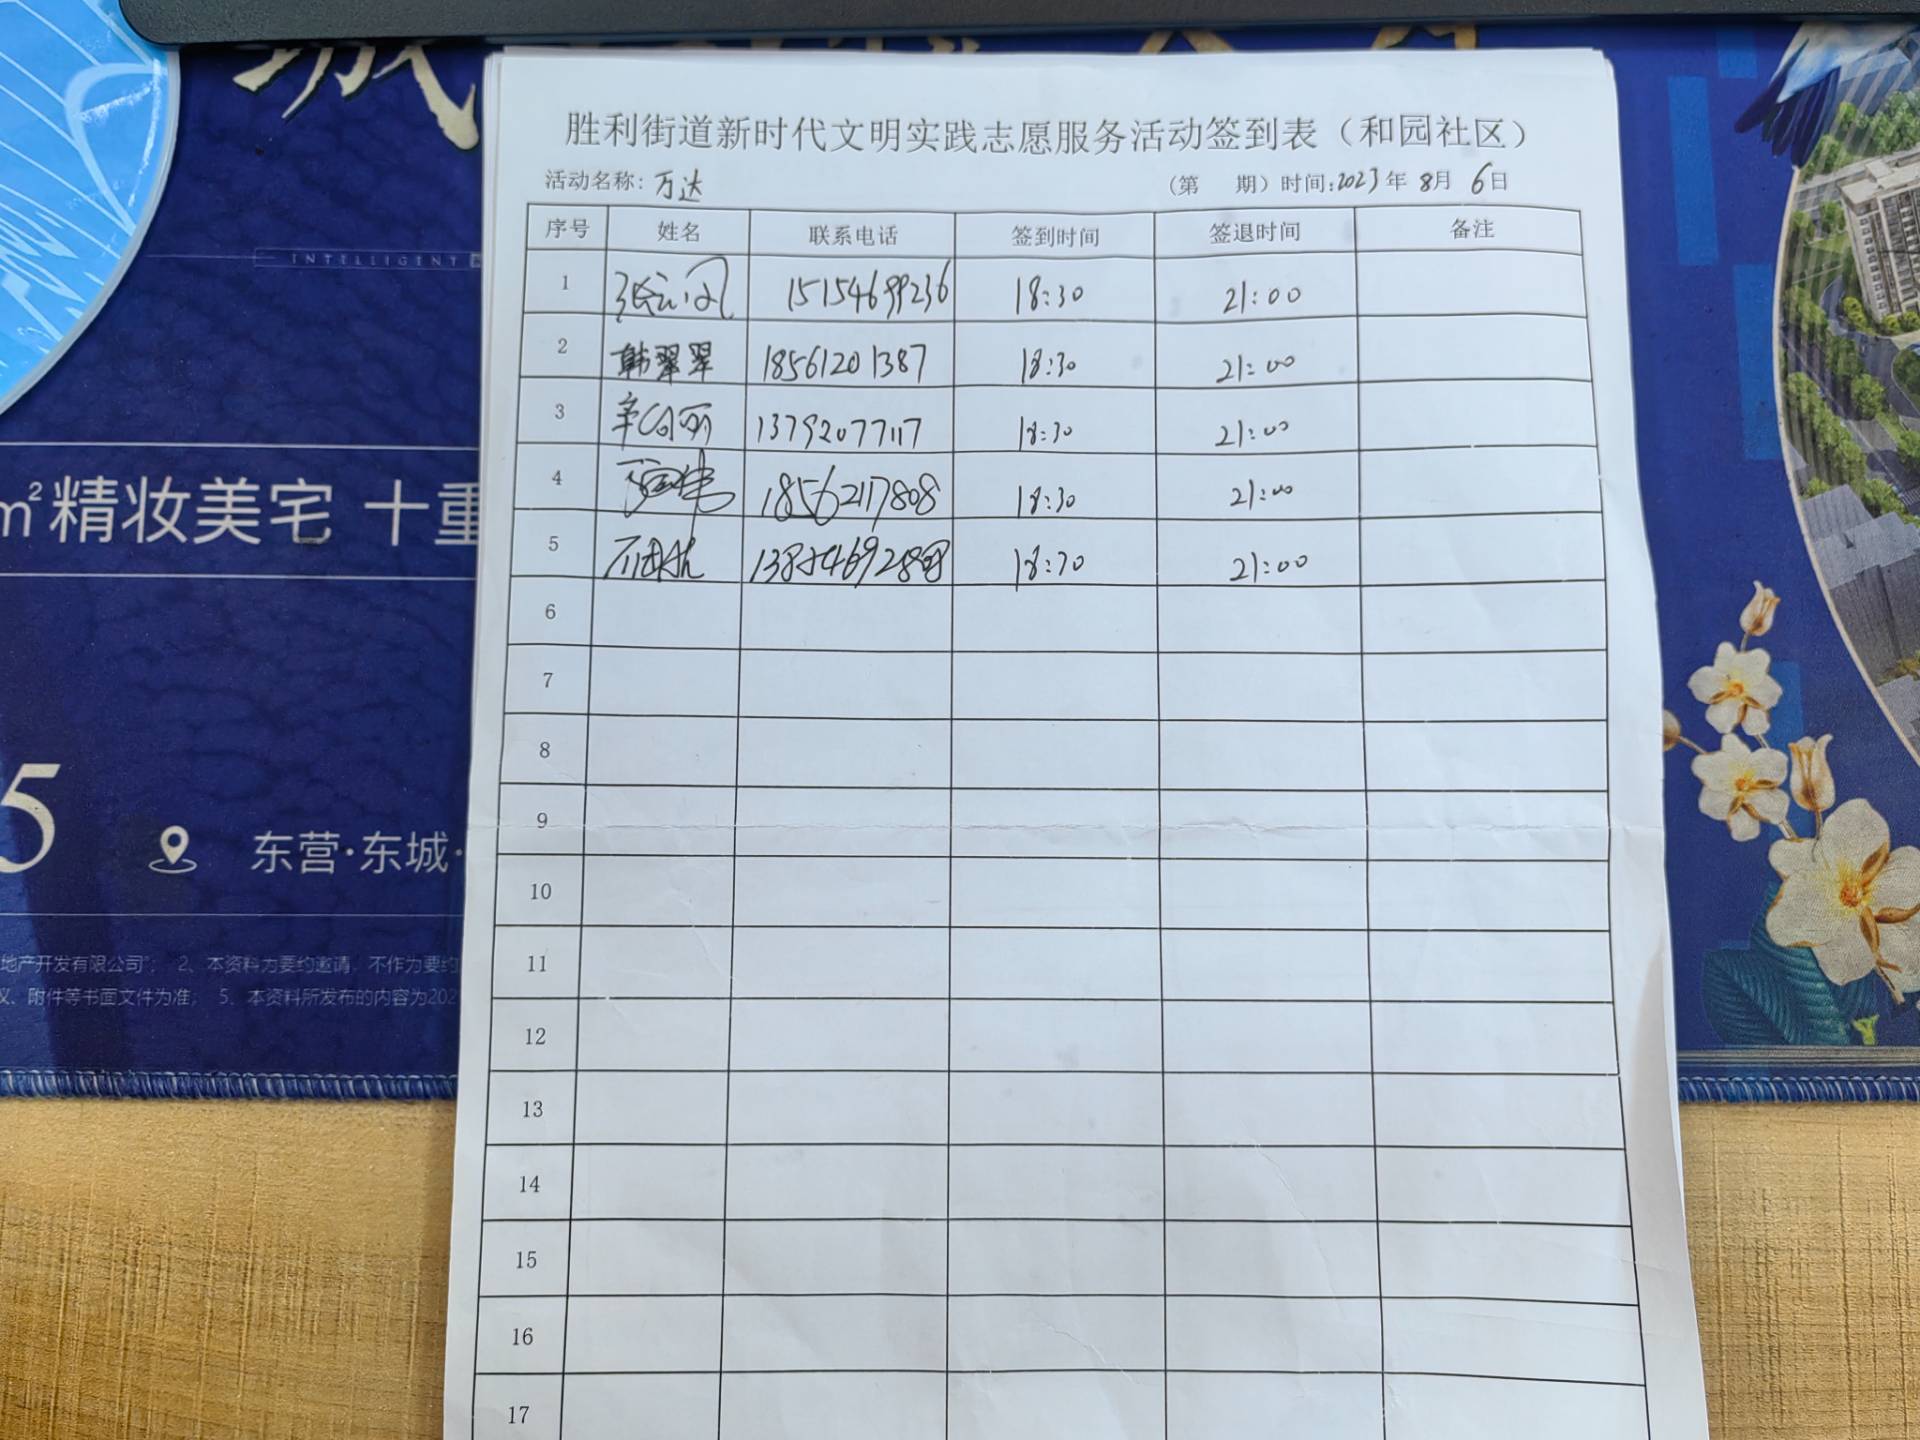 城
INTELLIGENT
m²精妆美宅 十重
5
东营·东城·
地产开发有限公司"; 2、本资料为要约邀请,不作为要约
议、附件等书面文件为准; 5、本资料所发布的内容为202
胜利街道新时代文明实践志愿服务活动签到表(和园社区)
活动名称: 万达 (第 期) 时间:2023年 8月 6日
序号 姓名 联系电话 签到时间 签退时间 备注
1 15154699236 18:30 21:00
2 韩翠翠 18561201387 18:30 21:00
3 13792077117 18:30 21:00
4 18562117808 18:30 21:00
5 18:30 21:00
6
7
8
9
10
11
12
13
14
15
16
17